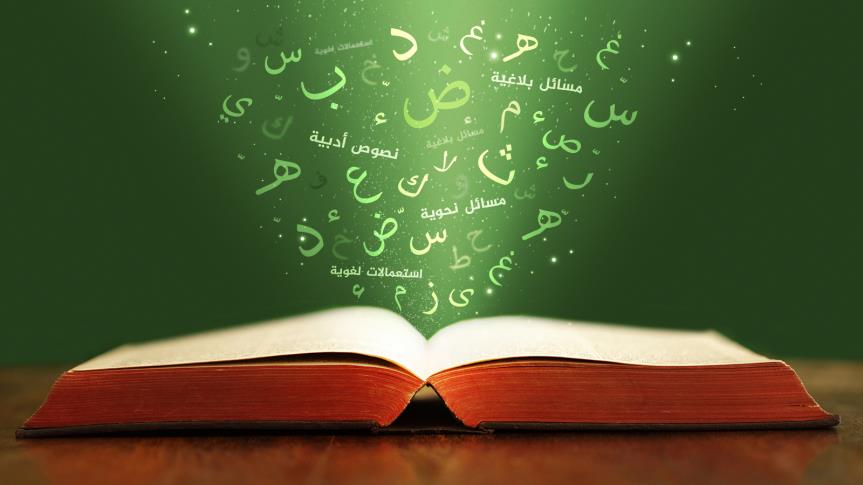 استعمالات لغوية
ش
س
و
د
ش
غ
ه
ح
غ
مسائل بلاغية
ب
خ
ض
ي
ك
ء
م
ء
س
نصوص أدبية
مسائل بلاغية
ص
لا
ث
ء
ر
ه
و
ع
ك
و
ش
مسائل نحوية
ء
د
خ
ض
س
ح
ه
ط
استعمالات لغوية
غ
ء
م
ز
ى